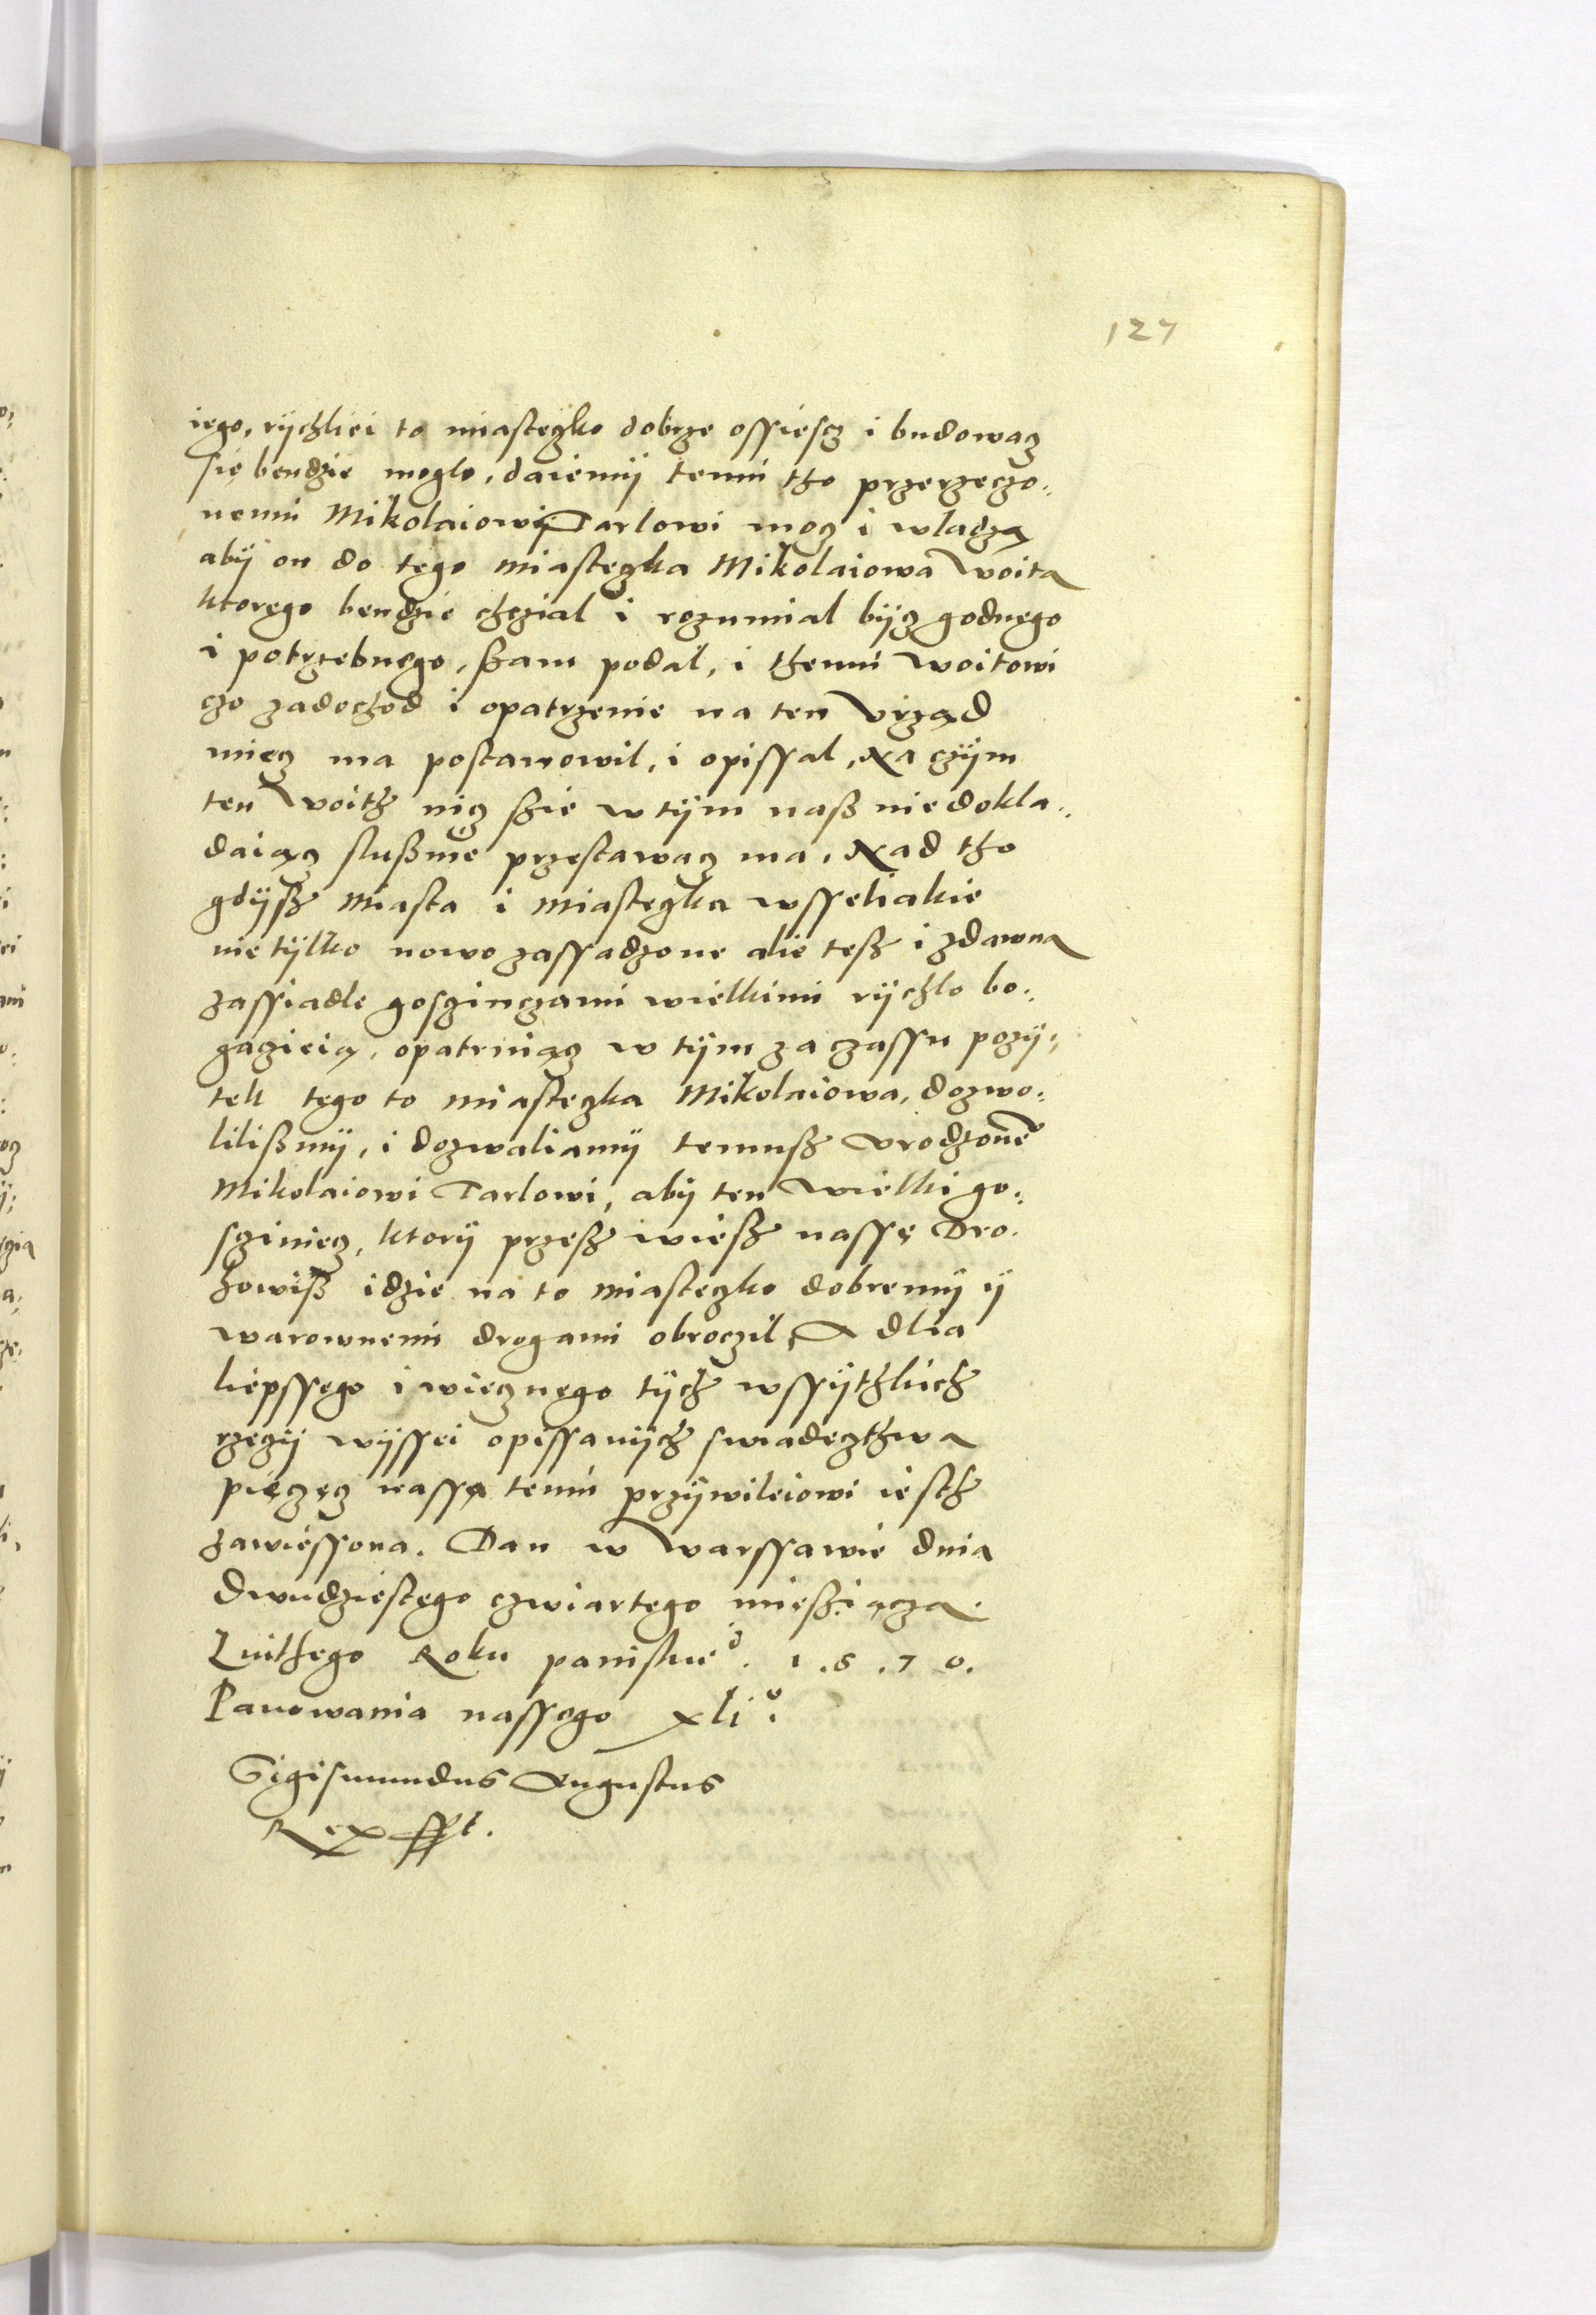 127
iego, rÿchliei to miasteczko dobrze ossiescz i budowacz
się bendzie moglo, daiemÿ temu tho przerzeczo„
nemu Mikolaiowi Tarlowi mocz i wladzą
abÿ on do tego miasteczka Mikolaiowa Woita
ktorego bendzie chczial i rozumial bÿcz godnego
i potrzebnego, sam podal, i themu woitowi
czo za dochod i opatrzenie na ten Vrząd
miecz ma postanowil, i opissal, Na czÿm
ten Woith nicz szie w tÿm nasz nie dokla„
daiącz slusznie przestawacz ma, Nad tho
gdÿsz Miasta i Miasteczka wsseliakie
nie tÿlko nowo zassadzone alie tesz i zdawna
zassiadle gosczinczami wielkimi rÿchlo bo„
gaczieią, opatruiącz w tÿm za czassu pozÿ„
tek tego to miasteczka Mikolaiowa, dozwo„
lilismÿ, i dozwaliamÿ temusz Vrodzone°
Mikolaiowi Tarlowi, abÿ ten wielki go„
sziniecz, ktorÿ przesz wiesz nassę Dro„
howisz idzie na to miasteczko dobremÿ ÿ
warownemi drogami obroczil, A dlia
liepssego i wiecznego tÿch wssÿthkich
rzeczÿ wÿssei opissanÿch swiadecthwa
pieczęcz nassa temu przÿwileiowi iesth
zawiessona. Dan w Warssawie dnia
Dwudziestego czwiartego mieszіącza
Luithego Roku paniskie° 1.5.7 0.
Panowania nassego xli°
Sigismundus Augustus
Rex sst.